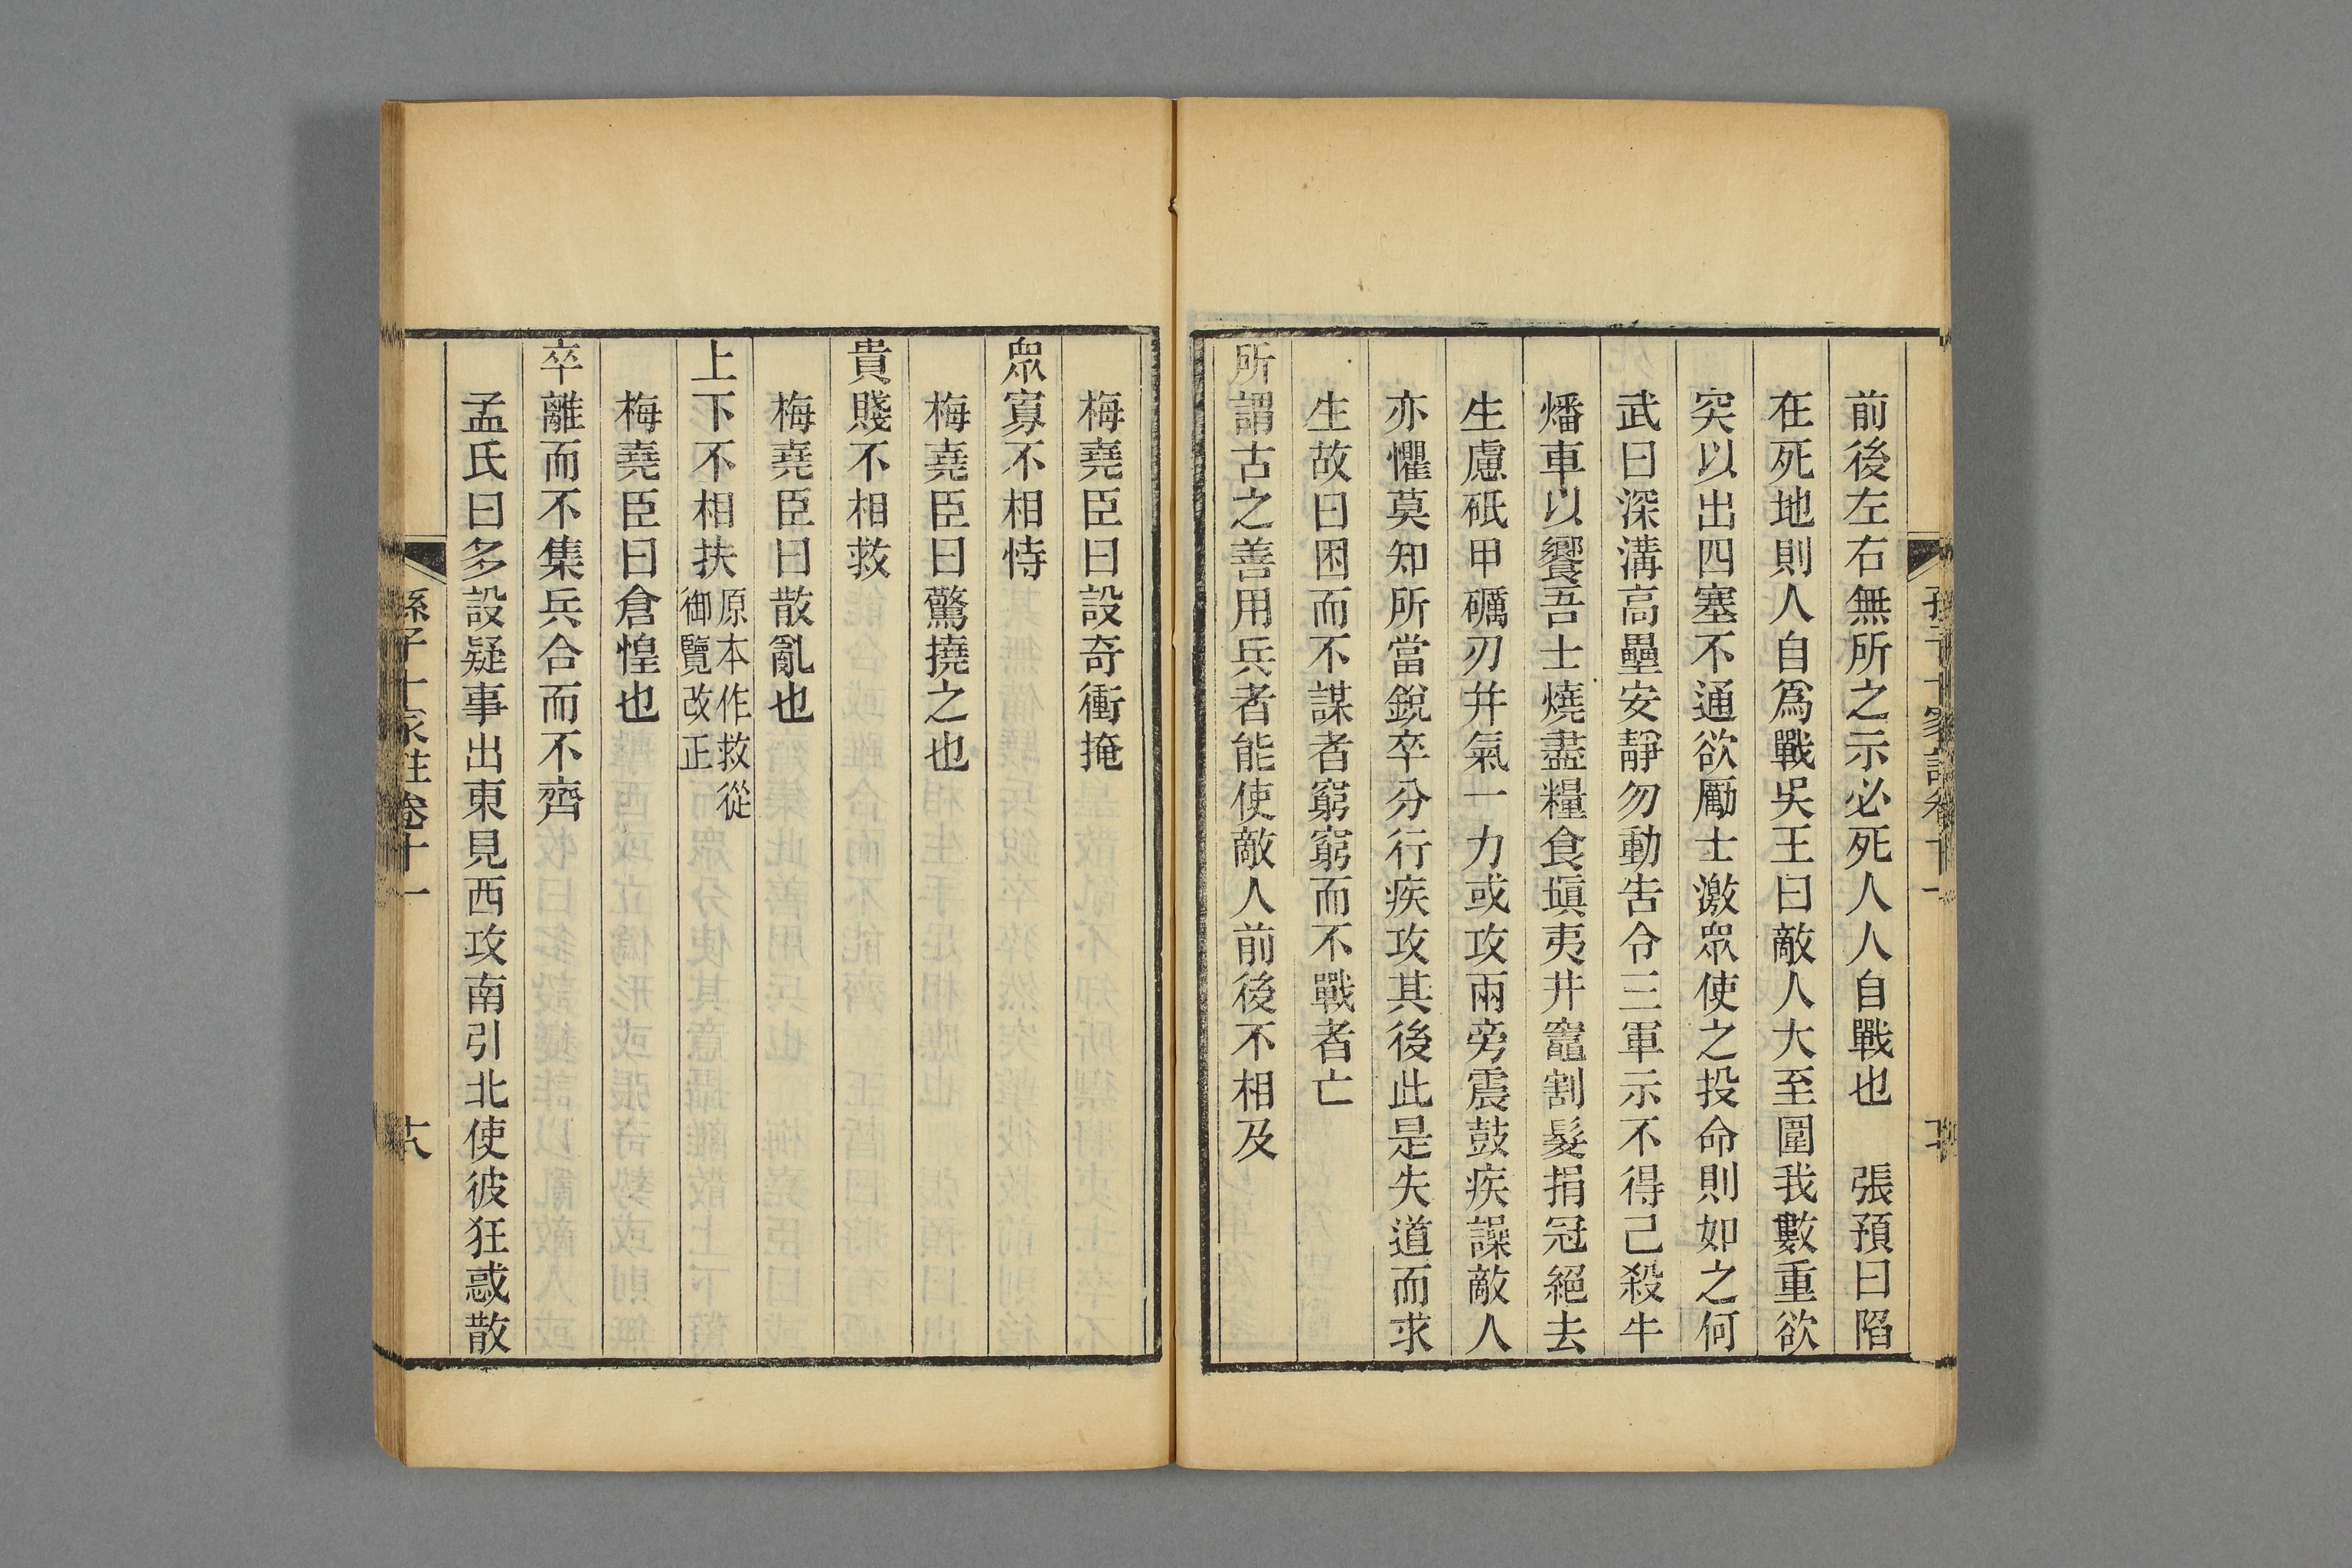 前後左右無所之示必死人人自戰也　張預曰陷
在死地則人自爲戰吳王曰敵人大至圍我數重欲
突以出四塞不通欲勵士激眾使之投命則如之何
武曰深溝高壘安靜勿動告令三軍示不得已殺牛
燔車以饗吾士燒盡糧食塡夷井竈割髮捐冠絕去
生慮砥甲礪刃幷氣一力或攻兩旁震鼓疾譟敵人
亦懼莫知所當銳卒分行疾攻其後此是失道而求
生故曰困而不謀者窮窮而不戰者亡
所謂古之善用兵者能使敵人前後不相及
梅堯臣曰設奇衝掩
眾寡不相恃
梅堯臣曰驚撓之也
貴賤不相救
梅堯臣曰散亂也
上下不相扶原本作救從
御覽改正
梅堯臣曰倉惶也
卒離而不集兵合而不齊
孟氏曰多設疑事出東見西攻南引北使彼狂惑散
孫子十家註卷十一
十八